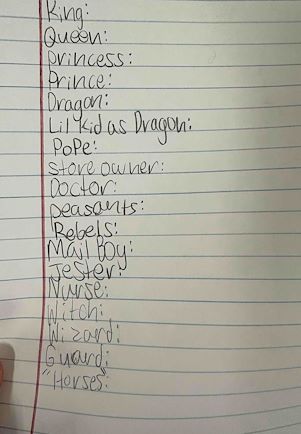 King:
Queen:
princess:
Prince:
Dragon:
Lil kid as Dragon:
PoPe:
store owner:
Doctor:
peasants:
Rebels:
Mail boy:
Jester:
Nurse:
Witch:
Wizard:
Guard:
"Horses":